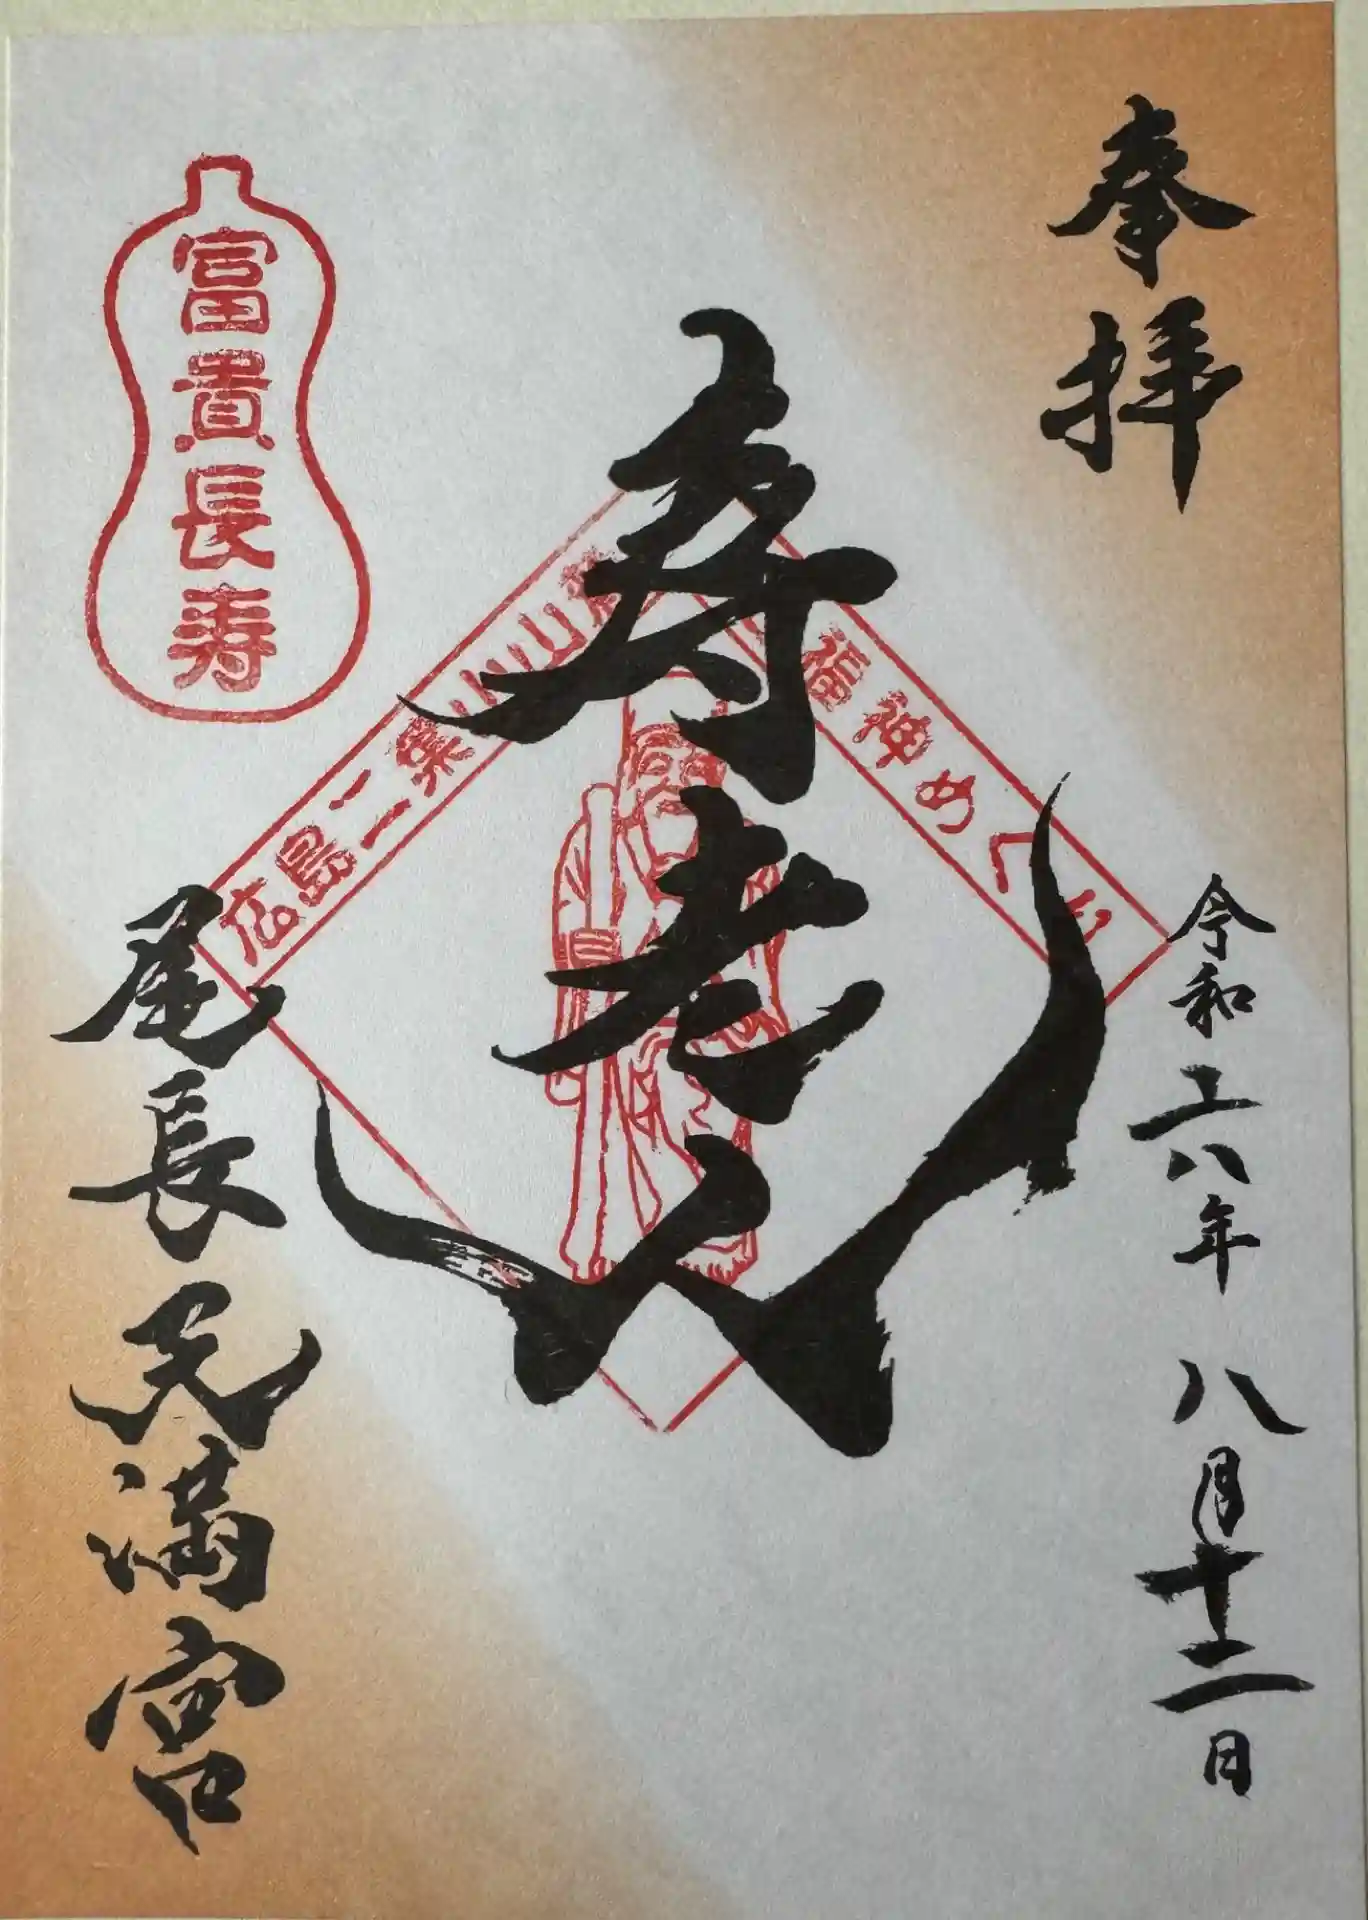 奉拝
令和六年八月十二日
寿老人
広島二葉山山麓
福神めぐり
富貴長寿
尾長天満宮